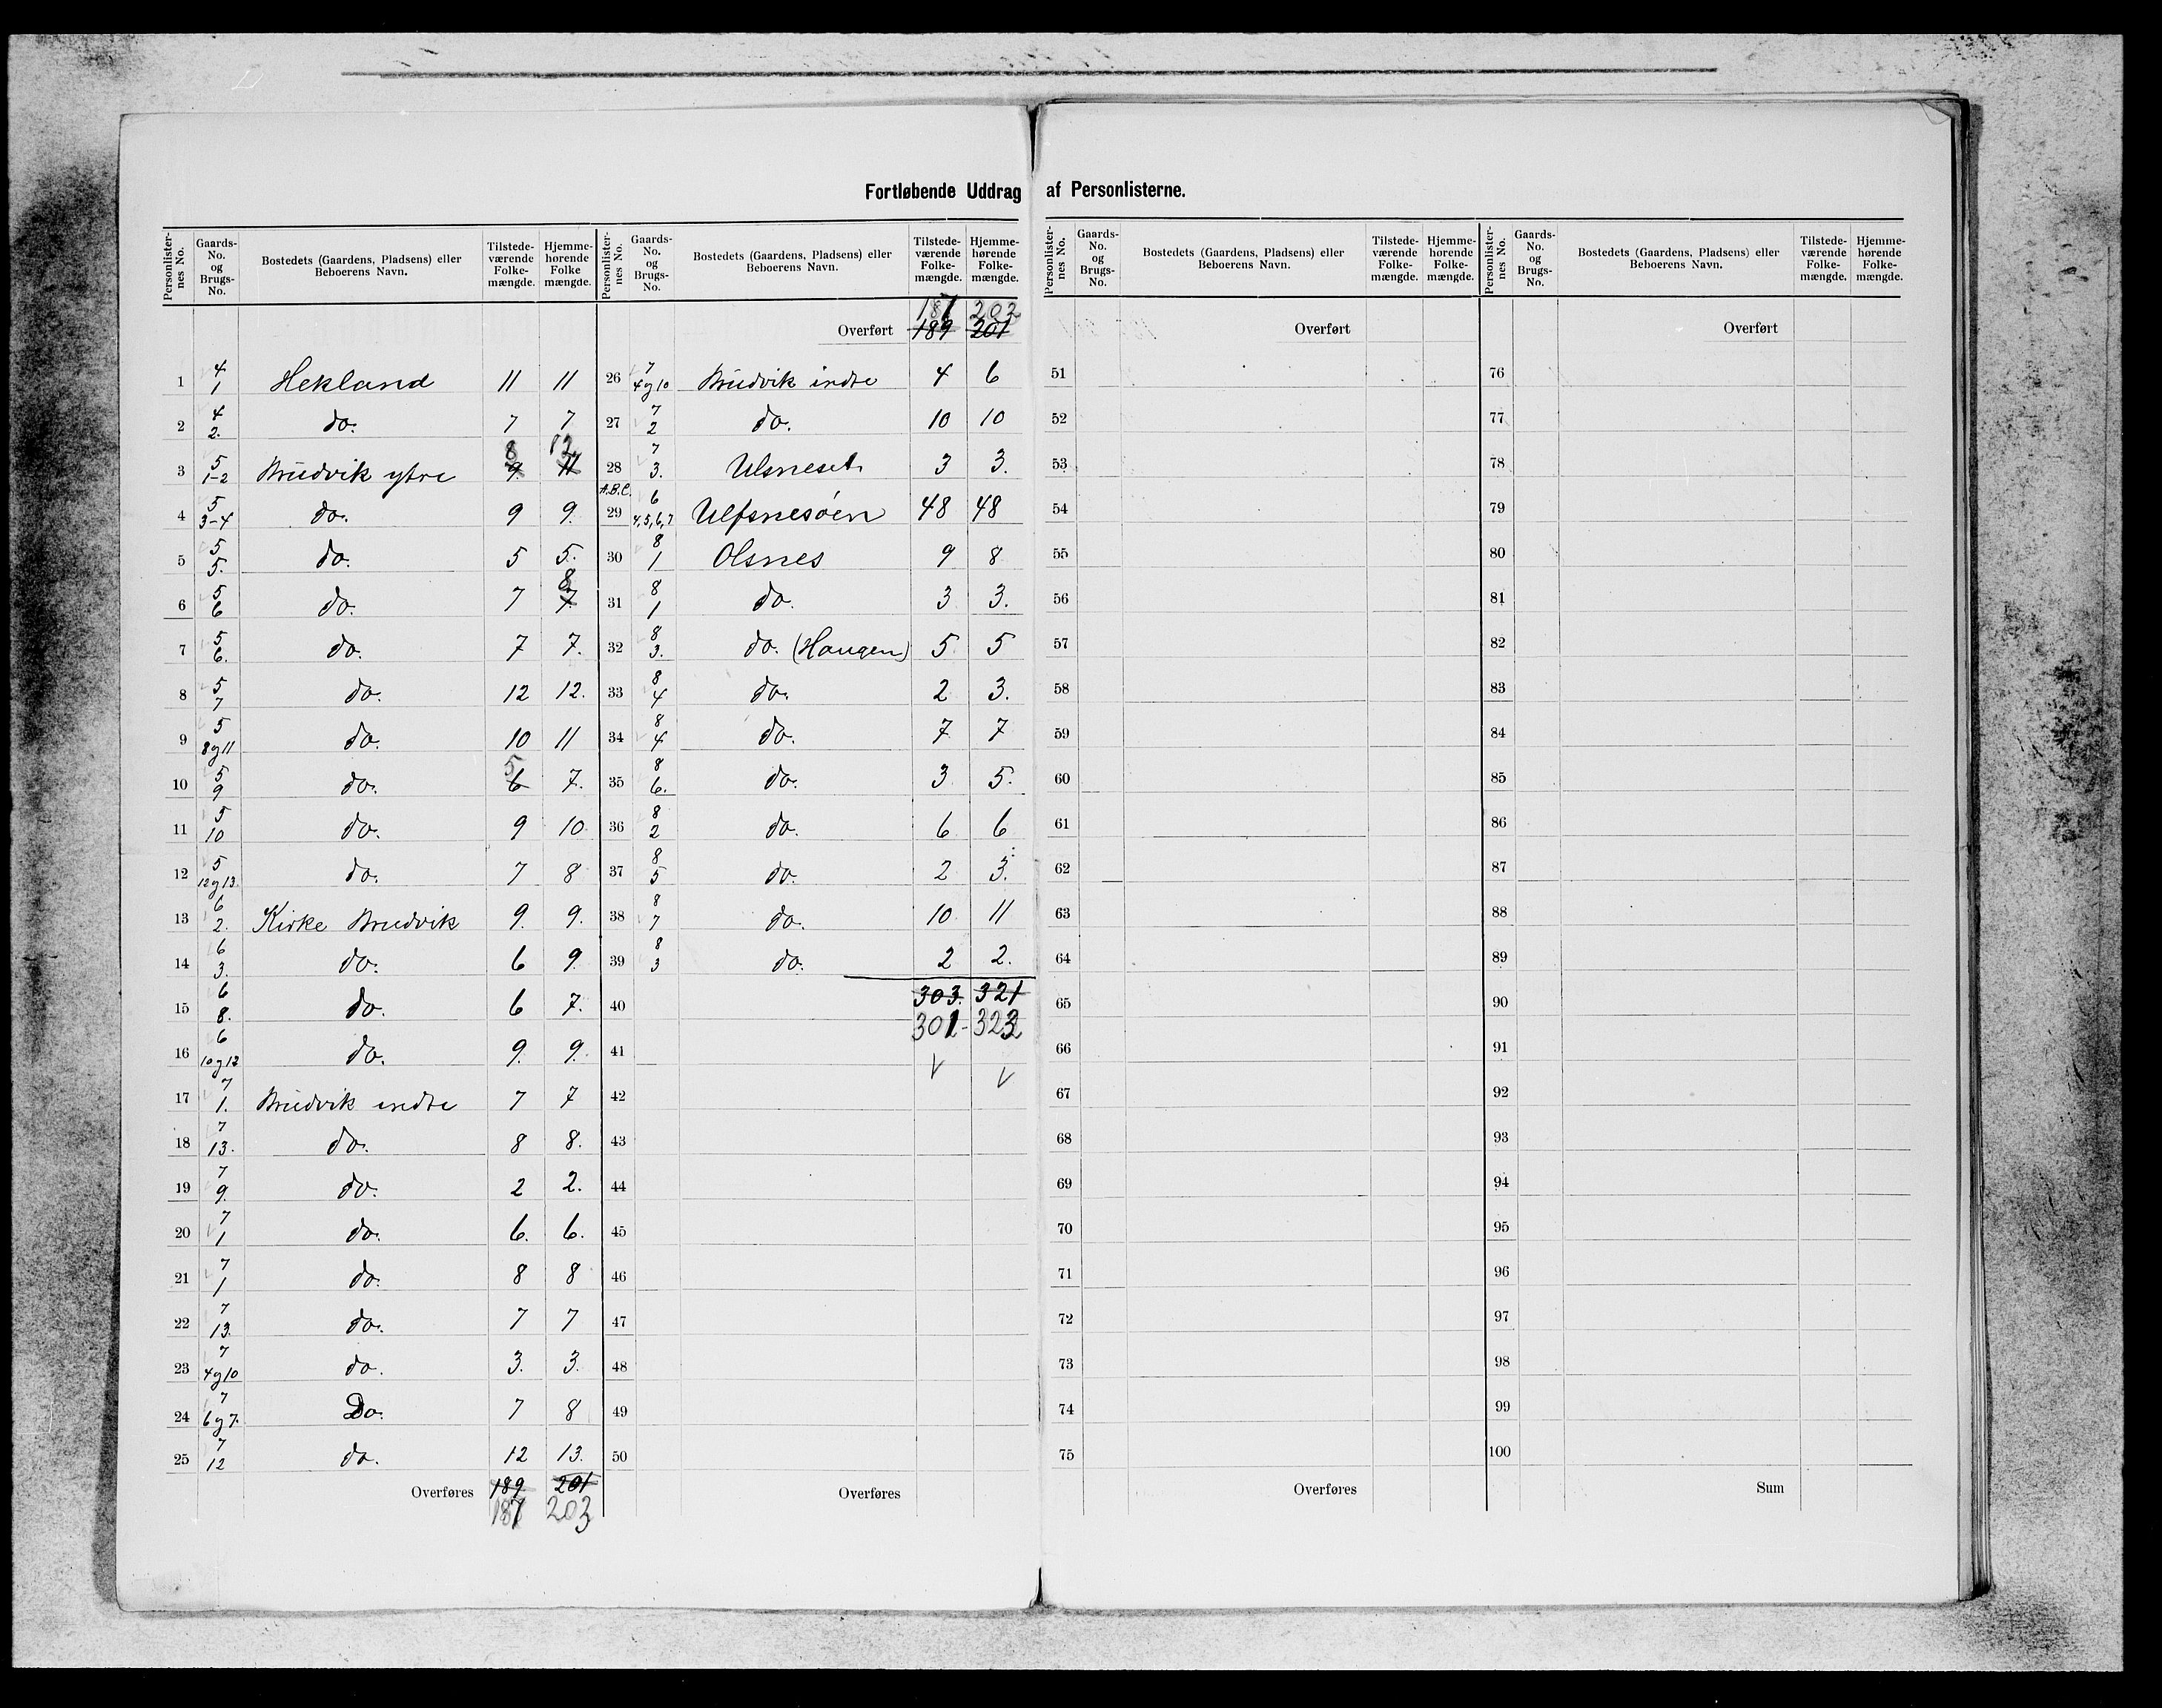 Fortløbende Uddrag af Personlisterne.
Personlisternes No. | Gaards-No. og Brugs-No. | Bostedets (Gaardens, Pladsens) eller Beboerens Navn. | Tilstedeværende Folkemængde. | Hjemmehørende Folke mængde.
1 | 4 1 | Hekland | 11 | 11
2 | 4 2. | do. | 7 | 7
3 | 5 1-2 | Bruvik ytre | 9 8 | 11 12
4 | 5 3-4 | do. | 9 | 9.
5 | 5 5. | do. | 5 | 5.
6 | 5 6 | do. | 7 | 7 8
7 | 5 6. | do. | 7 | 7.
8 | 5 7 | do. | 12 | 12.
9 | 5 8 g 11 | do. | 10 | 11
10 | 5 9 | do. | 6 5 | 7.
11 | 5 10 | do. | 9 | 10
12 | 5 12 g 13. | do. | 7 | 8
13 | 6 2. | Kirke Brudvik | 9. | 9.
14 | 6 3. | do. | 6 | 9.
15 | 6 8. | do. | 6 | 7.
16 | 6 10 g 12 | do. | 9. | 9.
17 | 7 1. | Brudvik indre | 7 | 7
18 | 7 13. | do. | 8 | 8.
19 | 7 9. | do. | 2 | 2.
20 | 7 1 | do. | 6. | 6.
21 | 7 1 | do. | 8 | 8
22 | 7 13. | do. | 7 | 7
23 | 7 4 g 10 | do. | 3. | 3.
24 | 7 6 g 7. | Do. | 7 | 8
25 | 7 12 | do. | 12 | 13.
Overføres | 189 | 201
187 | 203
Personlisternes No. | Gaards-No. og Brugs-No. | Bostedets (Gaardens, Pladsens) eller Beboerens Navn. | Tilstedeværende Folkemængde. | Hjemmehørende Folkemængde.
187 | 203
Overført | 189 | 201
26 | 7 4 g 10 | Brudvik indre | 4 | 6
27 | 7 2 | do. | 10 | 10
28 | 7 3. | Ulsneset | 3 | 3.
29 A.B.C. | 6 4, 5, 6, 7 | Ulfsnesøen | 48 | 48
30 | 8 1 | Olsnes | 9 | 8
31 | 8 1 | do. | 3 | 3.
32 | 8 3. | do. (Haugen) | 5 | 5
33 | 8 4 | do. | 2 | 3.
34 | 8 4 | do. | 7 | 7
35 | 8 6. | do. | 3 | 5.
36 | 8 2 | do. | 6 | 6
37 | 8 5 | do. | 2 | 3.
38 | 8 7 | do. | 10 | 11
39 | 8 3 | do. | 2 | 2.
40 | 303. | 321
301 - 323
41
42
43
44
45
46
47
48
49
50
Overføres
Personlisternes No. | Gaards-No. og Brugs-No. | Bostedets (Gaardens, Pladsens) eller Beboerens Navn. | Tilstedeværende Folkemængde. | Hjemmehørende Folkemængde.
Overført
51
52
53
54
55
56
57
58
59
60
61
62
63
64
65
66
67
68
69
70
71
72
73
74
75
Overføres
Personlisternes No. | Gaards-No. og Brugs-No. | Bostedets (Gaardens, Pladsens) eller Beboerens Navn. | Tilstedeværende Folkemængde. | Hjemmehørende Folkemængde.
Overført
76
77
78
79
80
81
82
83
84
85
86
87
88
89
90
91
92
93
94
95
96
97
98
99
100
Sum